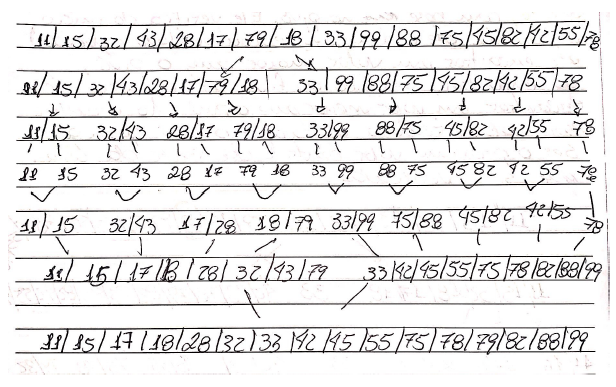 11/15/32/43/28/17/79/18/33/99/88/75/45/82/42/55/78
11/15/32/43/28/17/79/18| 33/99/88/75/45/82/42/55/78
11/15 32/43 28/17 79/18 33/99 88/75 45/82 42/55 78
11 15 32 43 28 17 79 18 33 99 88 75 45 82 42 55 78
11/15 32/43 17/28 18/79 33/99 75/88 45/82 42/55 78
11/15/17/18/28/32/43/79 33/42/45/55/75/78/82/88/99
11/15/17/18/28/32/33/42/45/55/75/78/79/82/88/99